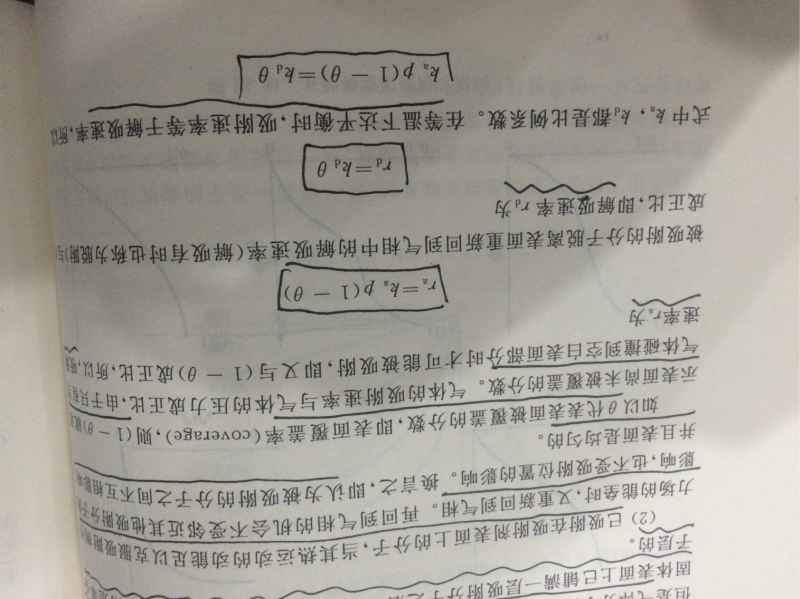 但是气体分
固体表面上已铺满一层吸附分子之
子层的。
(2) 已吸附在吸附剂表面上的分子,当其热运动的动能足以克服吸附
力场的能垒时,又重新回到气相。再回到气相的机会不受邻近其他吸附分子
影响,也不受吸附位置的影响。换言之,即认为被吸附的分子之间不互相影响
并且表面是均匀的。
如以θ代表表面被覆盖的分数,即表面覆盖率(coverage),则(1 − θ)就
示表面尚未被覆盖的分数。气体的吸附速率与气体的压力成正比,由于只有
气体碰撞到空白表面部分时才可能被吸附,即又与(1 − θ)成正比,所以,吸
速率rₐ为
rₐ=kₐ p(1 − θ)
被吸附的分子脱离表面重新回到气相中的解吸速率(解吸有时也称为脱附)与
成正比,即解吸速率 r_d为
r_d=k_d θ
式中 kₐ, k_d都是比例系数。在等温下达平衡时,吸附速率等于解吸速率,所以
kₐ p(1 − θ)=k_d θ